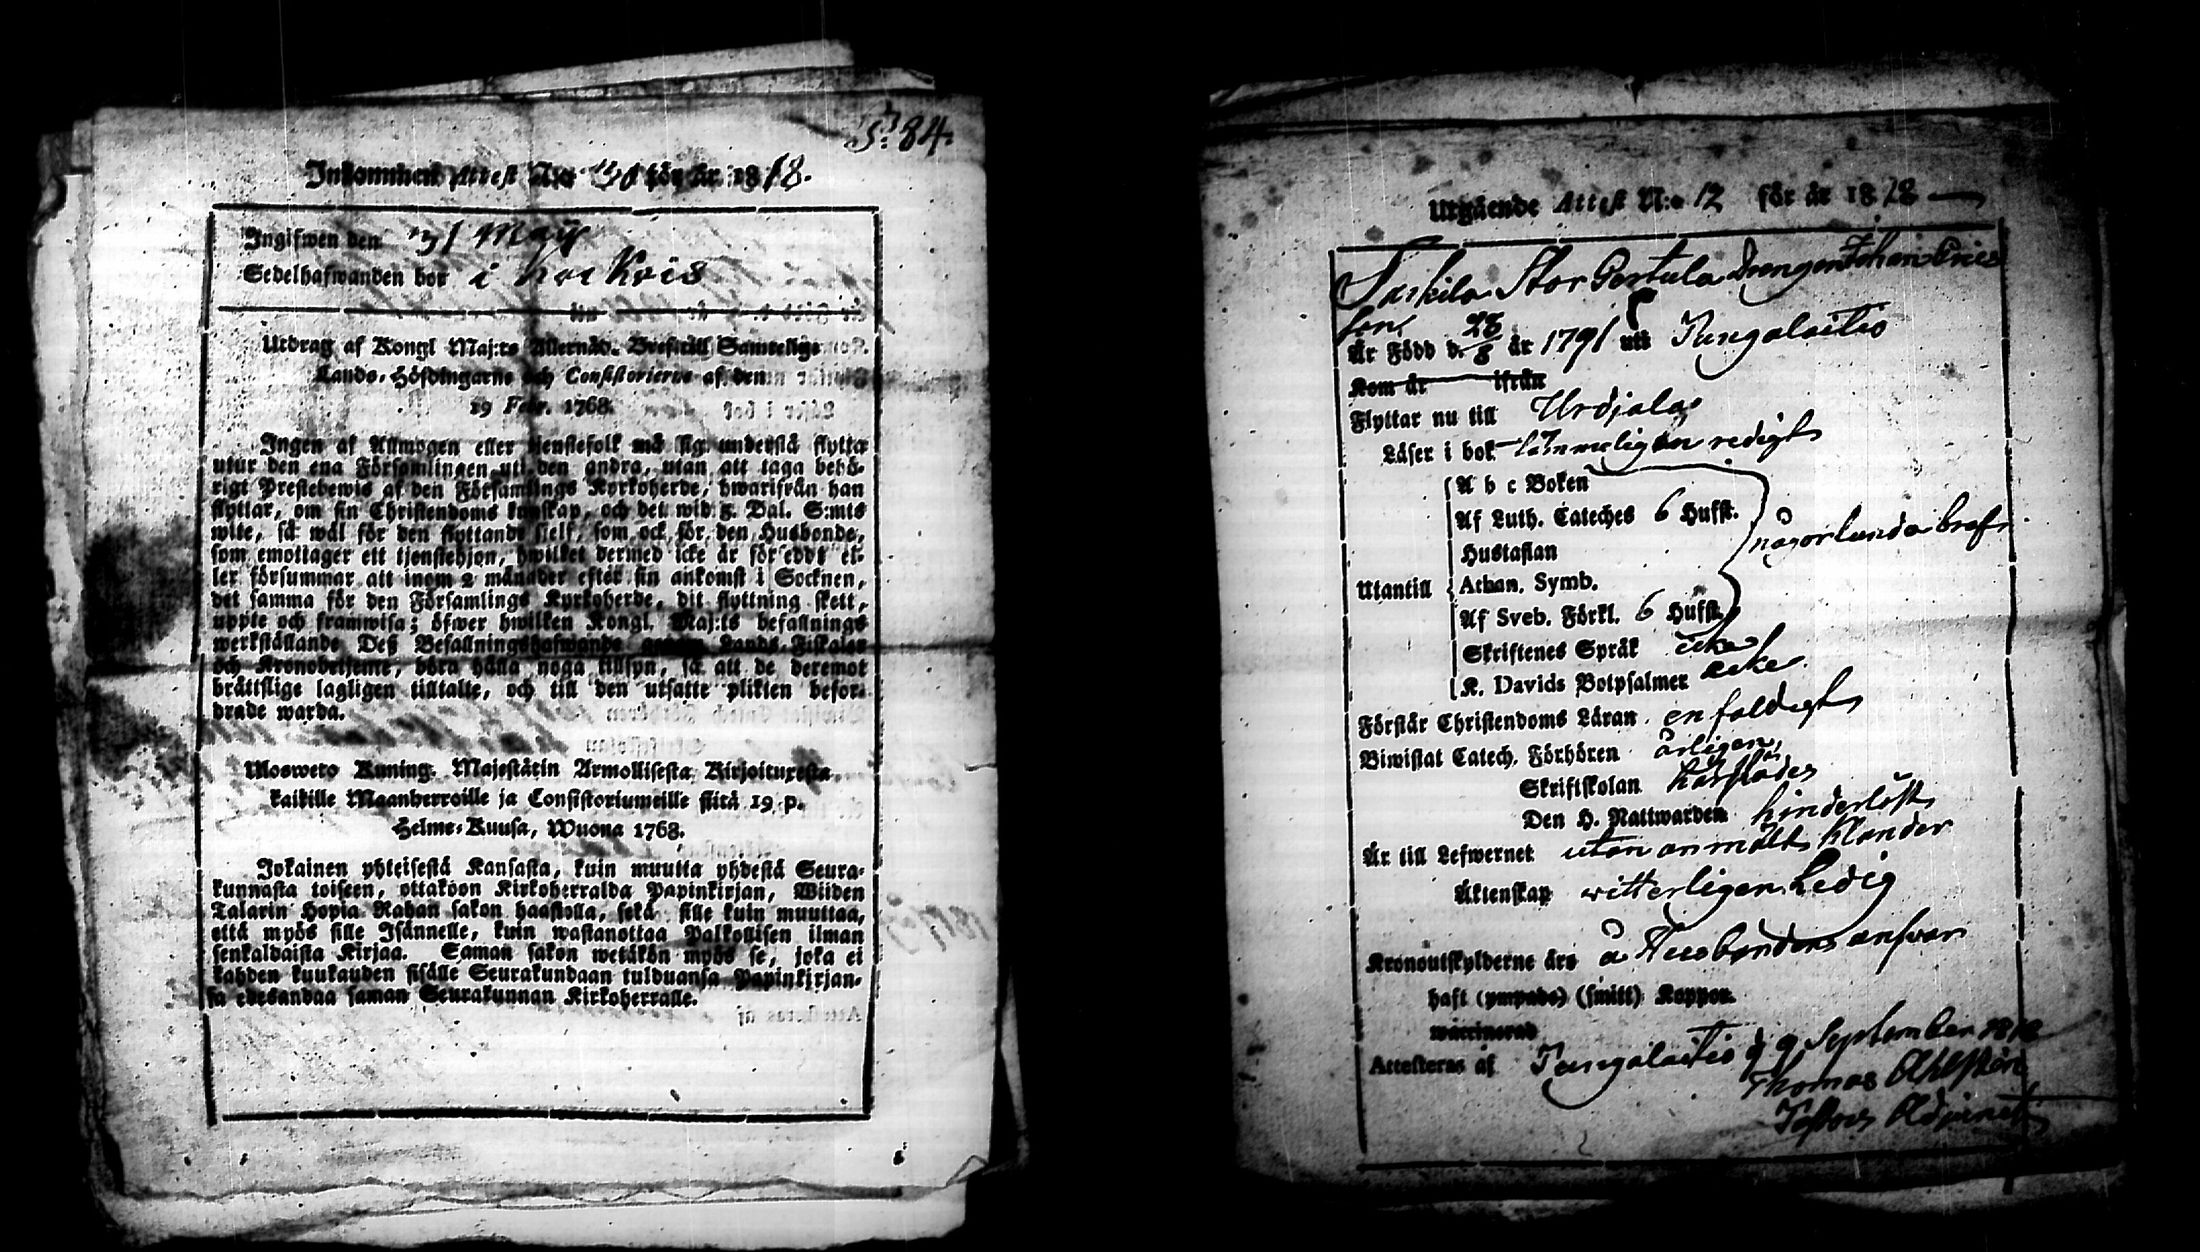 S. 84.
Inkommen Attest N:o 30 för år 1818.
Ingifwen den 31 Maij
Sedelhafwanden bor i
Utdrag af Kongl Maj:ts Allernåd. Bref till Samtelige
Lands-Höfdingarne och Consistorierne af den
19 Febr. 1768.
Ingen af Allmogen eller tjenstefolk må sig understå flytta
utur den ena Församlingen uti den andra, utan att taga behö-
rigt Prestebewis af den Församlings Kyrkoherde, hwarifrån han
flyttar, om sin Christendoms kunskap, och det wid 5. Dal. S:mts
wite, så wäl för den flyttande sielf, som ock för den Husbonde,
som emottager ett tjenstehjon, hwilket dermed icke är försedt el-
ler försummar att inom 2 månader efter sin ankomst i Socknen,
det samma för den Församlings Kyrkoherde, dit flyttning skett,
uppte och framwisa; öfwer hwilken Kongl. Maj:ts befallnings
werkställande Deß Befallningshafwande genom Lands-Fiskaler
och Kronobetjente, böra hålla noga tillsyn, så att de deremot
bråttslige lagligen tilltalte, och till den utsatte plikten befor-
drade warda.
Ulosweto Kuning. Majestätin Armollisesta Kirjoituxesta
kaikille Maanherroille ja Consistoriumeille siitä 19 p.
Helme-Kuusa, Wuona 1768.
Jokainen yhteisestä Kansasta, kuin muutta yhdestä Seura-
kunnasta toiseen, ottakoon Kirkoherralda Papinkirjan, Wiiden
Talarin Hopia Rahan sakon haastolla, sekä sille kuin muuttaa,
että myös sille Isännelle, kuin wastanottaa Palkollisen ilman
senkaldaista Kirjaa. Saman sakon wetäkön myös se, joka ei
kahden kuukauden sisälle Seurakundaan tulduansa Papinkirjan-
sa edesandaa saman Seurakunnan Kirkoherralle.
Utgående Attest N:o 12 för år 1818
Stor Pertula Drengen Johan Erics
son
Är Född d. 28/8 år 1791 uti Pungalaitio
Kom år ifrån
Flyttar nu till Urdjala
Läser i bok tämmeligen redigt
A b c Boken
Af Luth. Cateches 6 Hufst.
Hustaflan
någorlunda
Utantill Athan. Symb.
Af Sveb. Förkl. 6 Hufst.
Skriftenes Språk icke
K. Davids Botpsalmer icke
Förstår Christendoms Läran enfaldigt
Biwistat Catech. Förhören årligen
Skriftskolan
Den H. Nattwarden hinderlöst
Är till Lefwernet utan anmält klander
Äktenskap witterligen Ledig
Kronoutskylderne äro å Husbondens answar
haft (ympade) (smitt) Koppor.
waccinerad
Attesteras af Pungalaitio d 9 September 1818
Thomas Ahlsten
Pastors Adjunct